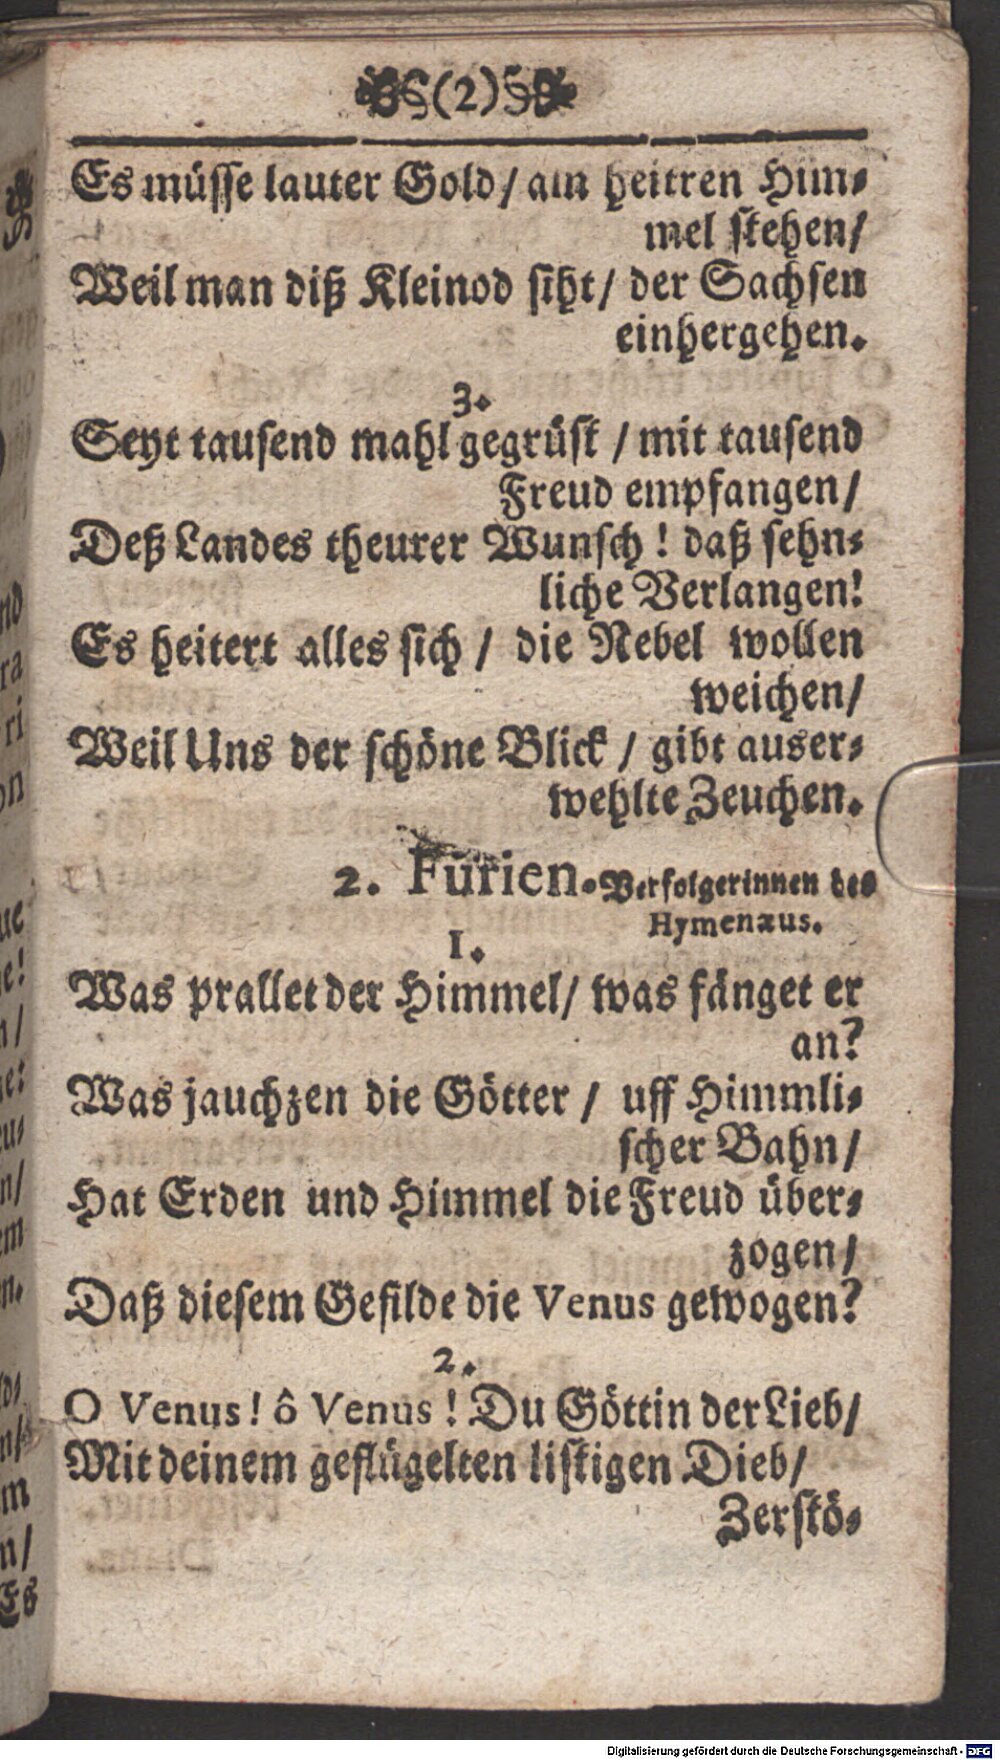 (2)
Es müsse lauter Gold/ am heitren Him-
mel stehen/
Weil man diß Kleinod siht/ der Sachsen
einhergehen.
3.
Seyt tausend mahl gegrüst / mit tausend
Freud empfangen/
Deß Landes theurer Wunsch! daß sehn-
liche Verlangen!
Es heitert alles sich / die Nebel wollen
weichen/
Weil Uns der schöne Blick / gibt auser-
wehlte Zeuchen.
2. Furien. Verfolgerinnen des
Hymenæus.
1.
Was prallet der Himmel/ was fänget er
an?
Was jauchzen die Götter / uff Himmli-
scher Bahn/
Hat Erden und Himmel die Freud über-
zogen/
Daß diesem Gefilde die Venus gewogen?
2.
O Venus! ô Venus! Du Göttin der Lieb/
Mit deinem geflügelten listigen Dieb/
Zerstö-
Es
Digitalisierung gefördert durch die Deutsche Forschungsgemeinschaft - DFG